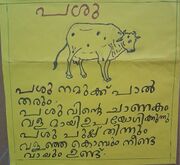 പശു
പശു നമുക്ക് പാൽ
തരും
പശുവിന്റെ ചാണകം
വളമായി ഉപയോഗിക്കുന്നു
പശു പുല്ല് തിന്നും
വളഞ്ഞ കൊമ്പും നീണ്ട
വാലും ഉണ്ട്